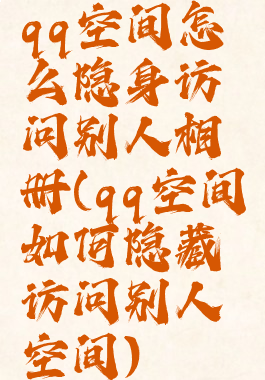 qq空间怎
么隐身访
问别人相
册(qq空间
如何隐藏
访问别人
空间)